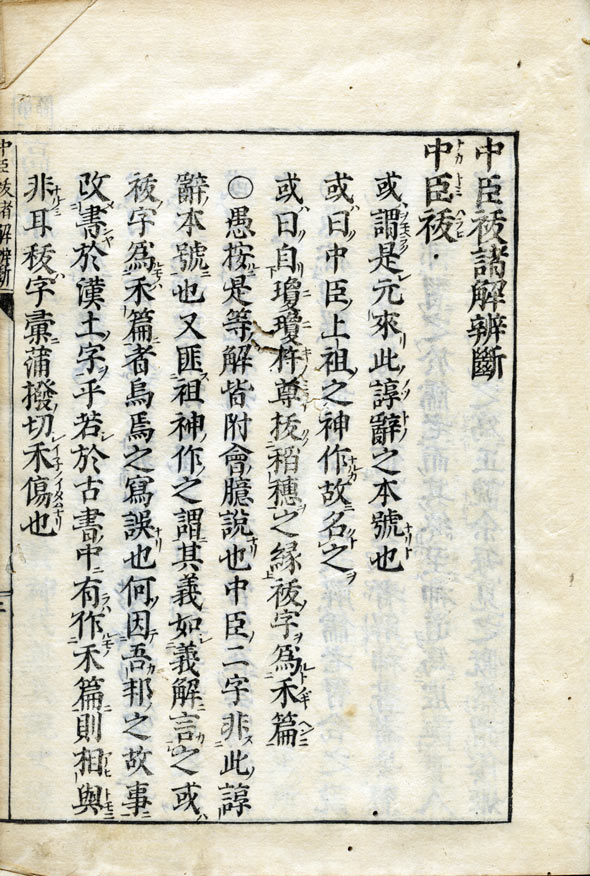 中臣祓諸解辨斷
中臣祓
或謂是元來此諄辭之本號也
或曰中臣上祖之神作故名之
或曰自瓊瓊杵尊抜稻穗之縁祓字為禾篇
〇愚按是等解皆附會臆說也中臣二字非此諄
辭本號也又匪祖神作之謂其義如義解言之或
祓字為禾篇者烏焉之寫誤也何因吾邦之故事
改書於漢土字乎若於古書中有作禾篇則相與
非耳秡字彙蒲撥切禾傷也
中臣祓諸解辨斷